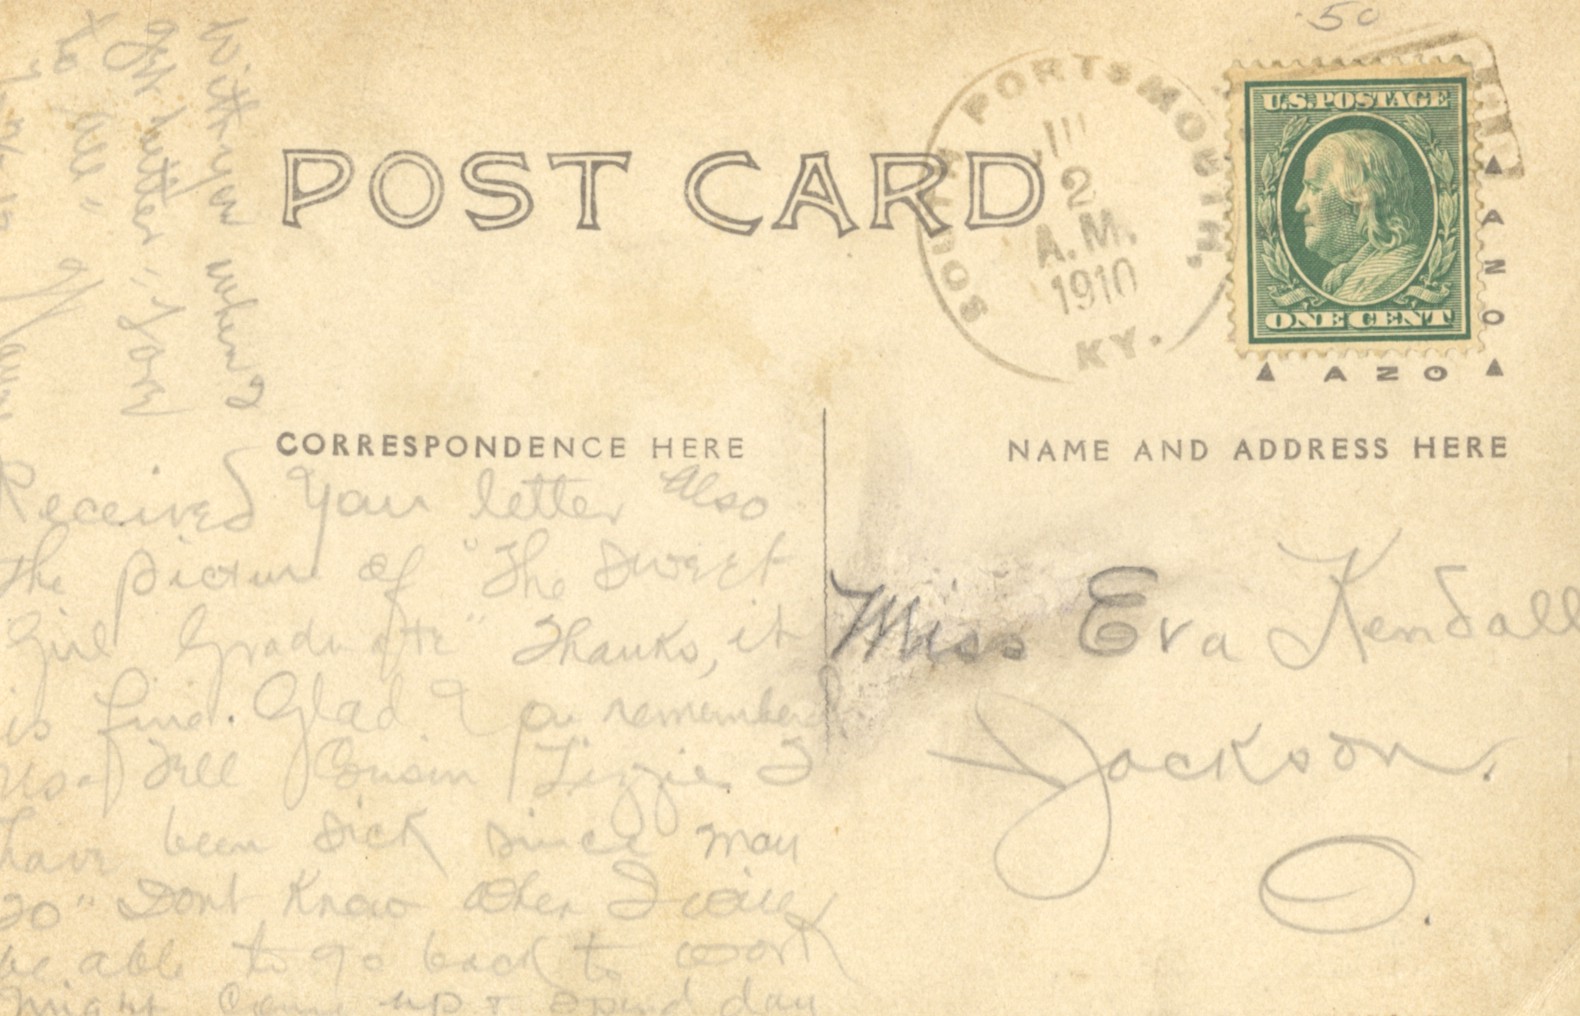 50
U.S. POSTAGE
ONE CENT
AZO
AZO
SOUTH PORTSMOUTH,
2
A.M.
1910
KY.
POST CARD
CORRESPONDENCE HERE
NAME AND ADDRESS HERE
Received your letter also
the picture of "The Sweet
Girl Graduate" Thanks, it
is fine. Glad you remembered
us. Tell Cousin Lizzie I
have been sick since May
20" Dont Know when I will
be able to go back to work
might come up & spend day
with you when I
get better, love
to all
Miss Eva Kendall
Jackson.
O.